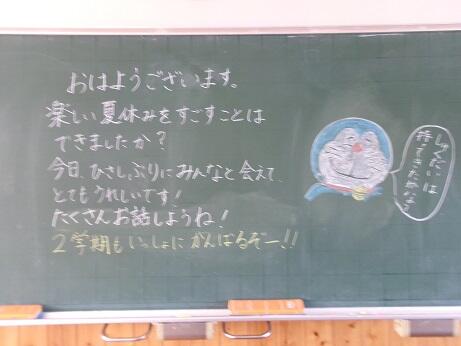 おはようございます。
楽しい夏休みをすごすことは
できましたか？
今日、ひさしぶりにみんなと会えて、
とてもうれしいです！
たくさんお話しようね！
２学期もいっしょにがんばるぞー!!
しゅくだいは
持てきたかな？